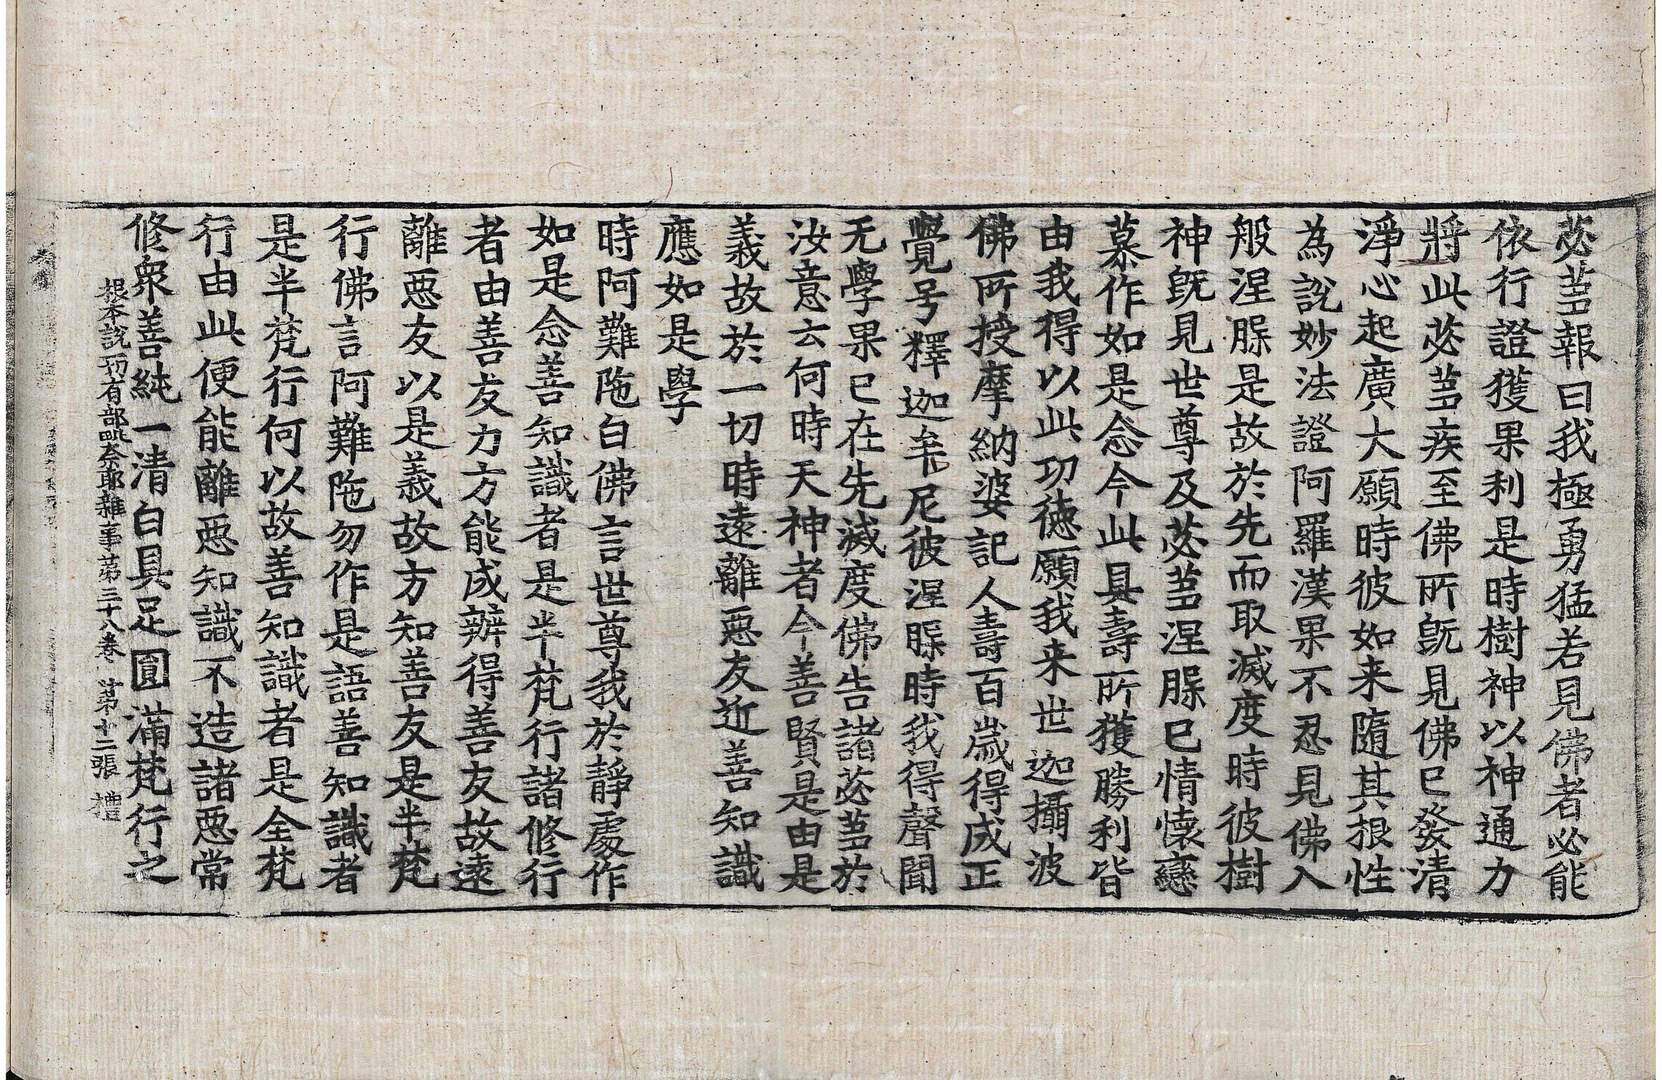 苾芻報曰我極勇猛若見佛者必能
依行證獲果利是時樹神以神通力
將此苾芻疾至佛所旣見佛已發清
淨心起廣大願時彼如来隨其根性
為說妙法證阿羅漢果不忍見佛入
般涅脲是故於先而取滅度時彼樹
神旣見世尊及苾芻涅脲已情懷戀
慕作如是念今此具壽所獲勝利皆
由我得以此功德願我来世迦攝波
佛所授摩納婆記人壽百歲得成正
覺号釋迦牟尼彼涅脲時我得聲聞
无學果已在先滅度佛告諸苾芻於
汝意云何時天神者今善賢是由是
義故於一切時遠離惡友近善知識
應如是學
時阿難陁白佛言世尊我於靜處作
如是念善知識者是半梵行諸修行
者由善友力方能成辦得善友故遠
離惡友以是義故方知善友是半梵
行佛言阿難陁勿作是語善知識者
是半梵行何以故善知識者是全梵
行由此便能離惡知識不造諸惡常
修衆善純一清白具足圓滿梵行之
根本說一切有部毗奈耶雜事第三十八卷 第十二張 禮